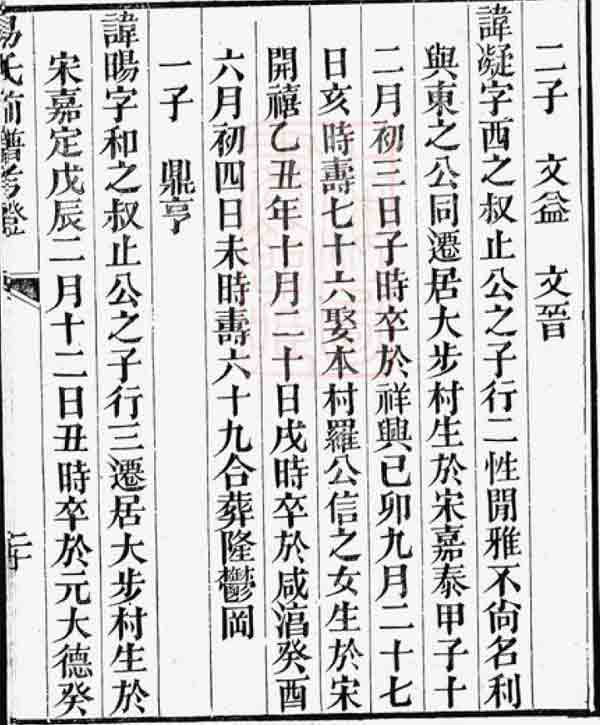 二子　文益　文晉
諱凝字西之叔止公之子行二性閒雅不尙名利
與東之公同遷居大步村生於宋嘉泰甲子十
二月初三日子時卒於祥興己卯九月二十七
日亥時壽七十六娶本村羅公信之女生於宋
開禧乙丑年十月二十日戌時卒於咸淳癸酉
六月初四日未時壽六十九合葬隆鬱岡
一子　鼎亨
諱暘字和之叔止公之子行三遷居大步村生於
宋嘉定戊辰二月十二日丑時卒於元大德癸
氏簡譜考證